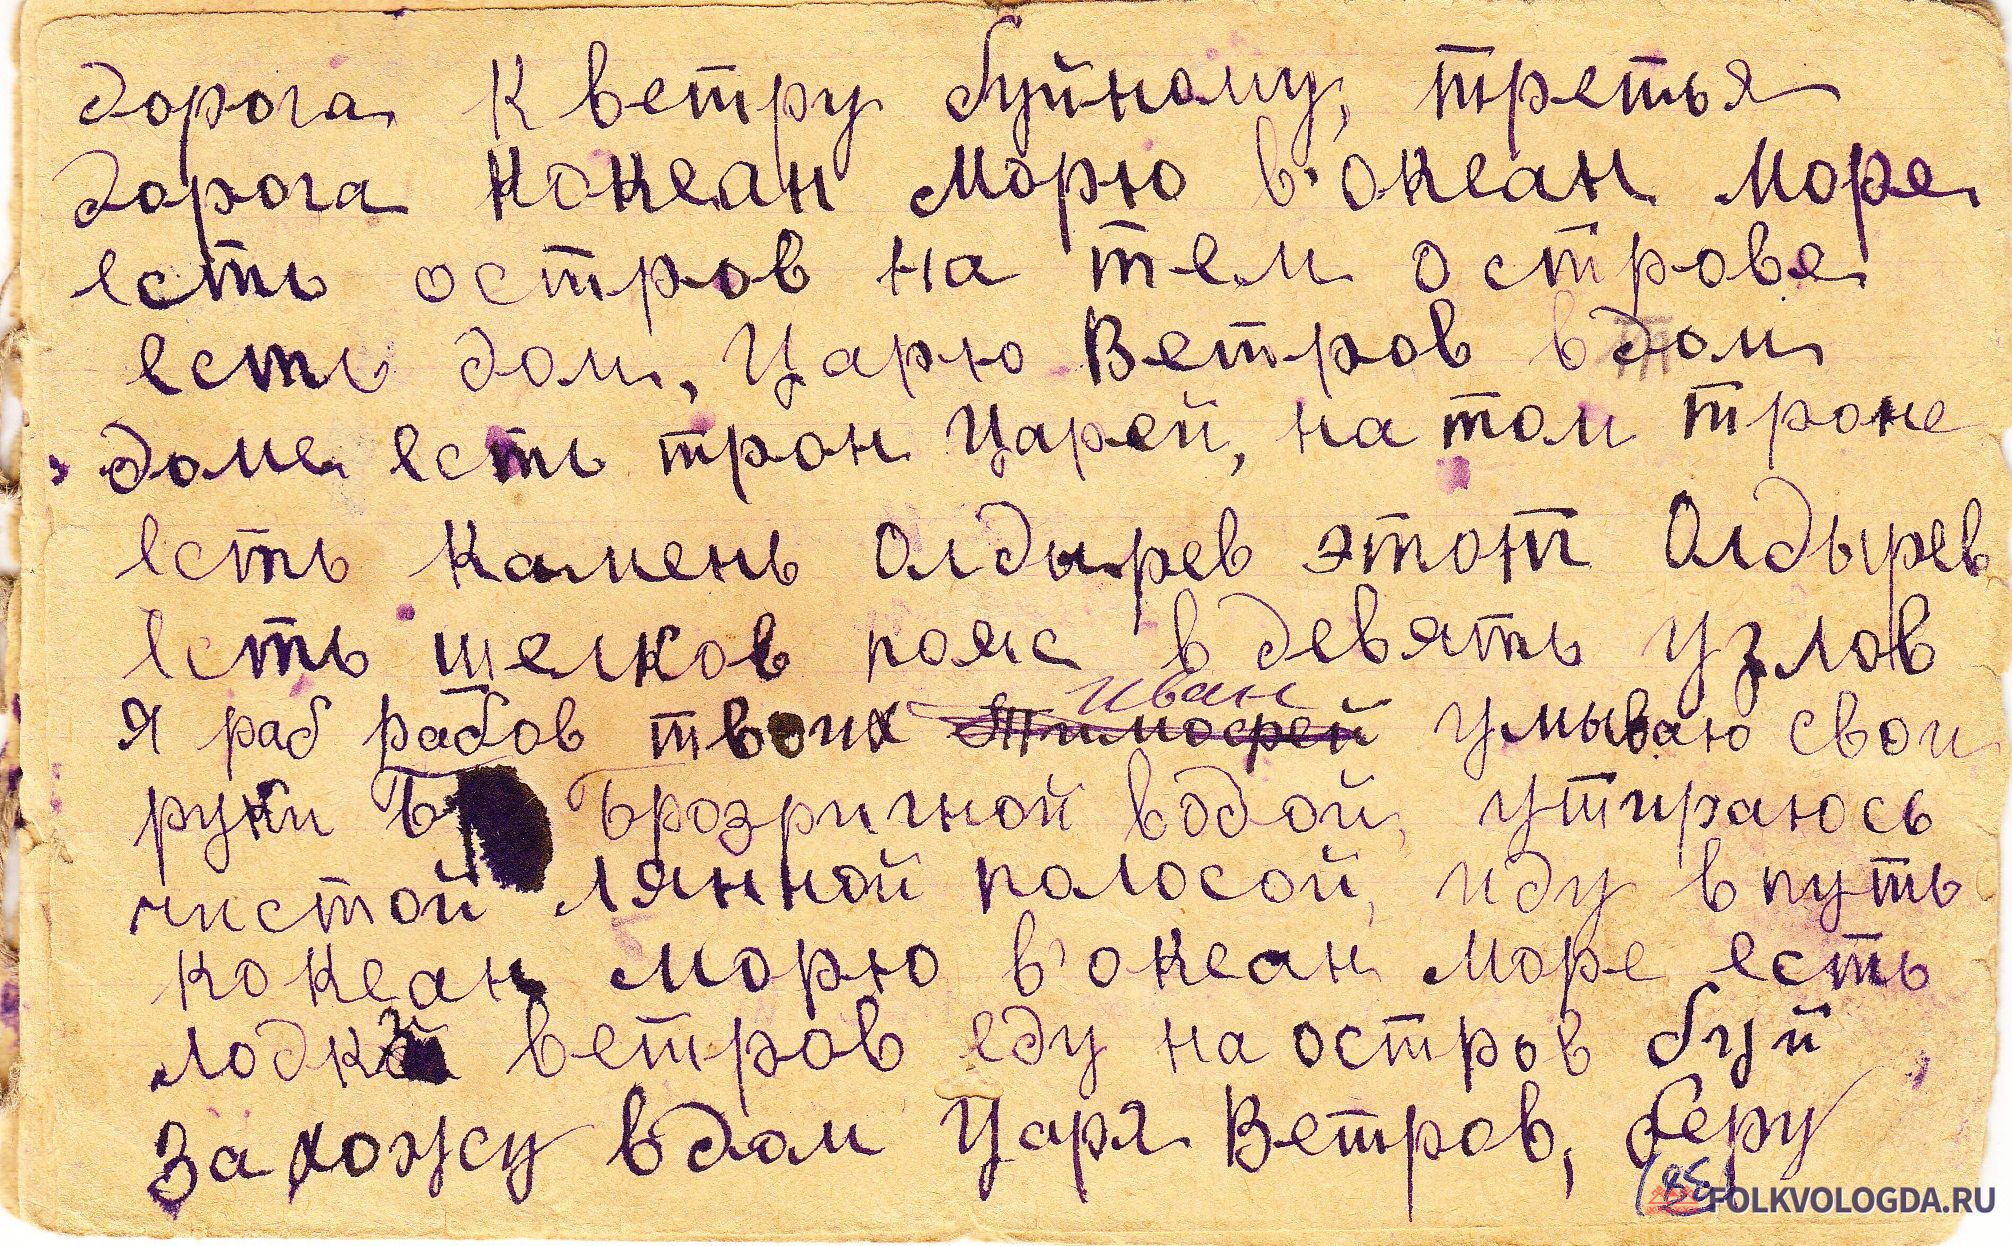 дорога к ветру буйному, третья
дорога кокеан морю в'океан море
есть остров на тем острове
есть дом, Царю Ветров в дом
доме есть трон Царей, на том троне
есть камень Олдырев этот Олдырев
есть шелков пояс в девять узлов
Иван
я раб рабов твоих Тимофей умываю свои
руки Ъ Ърозричной водой, утираюсь
чистой лянной полосой, иду в путь
кокеан морю в'океан море есть
лодка ветров еду на остров буй,
Захожу в дом Царя Ветров, беру
FOLKVOLOGDA.RU